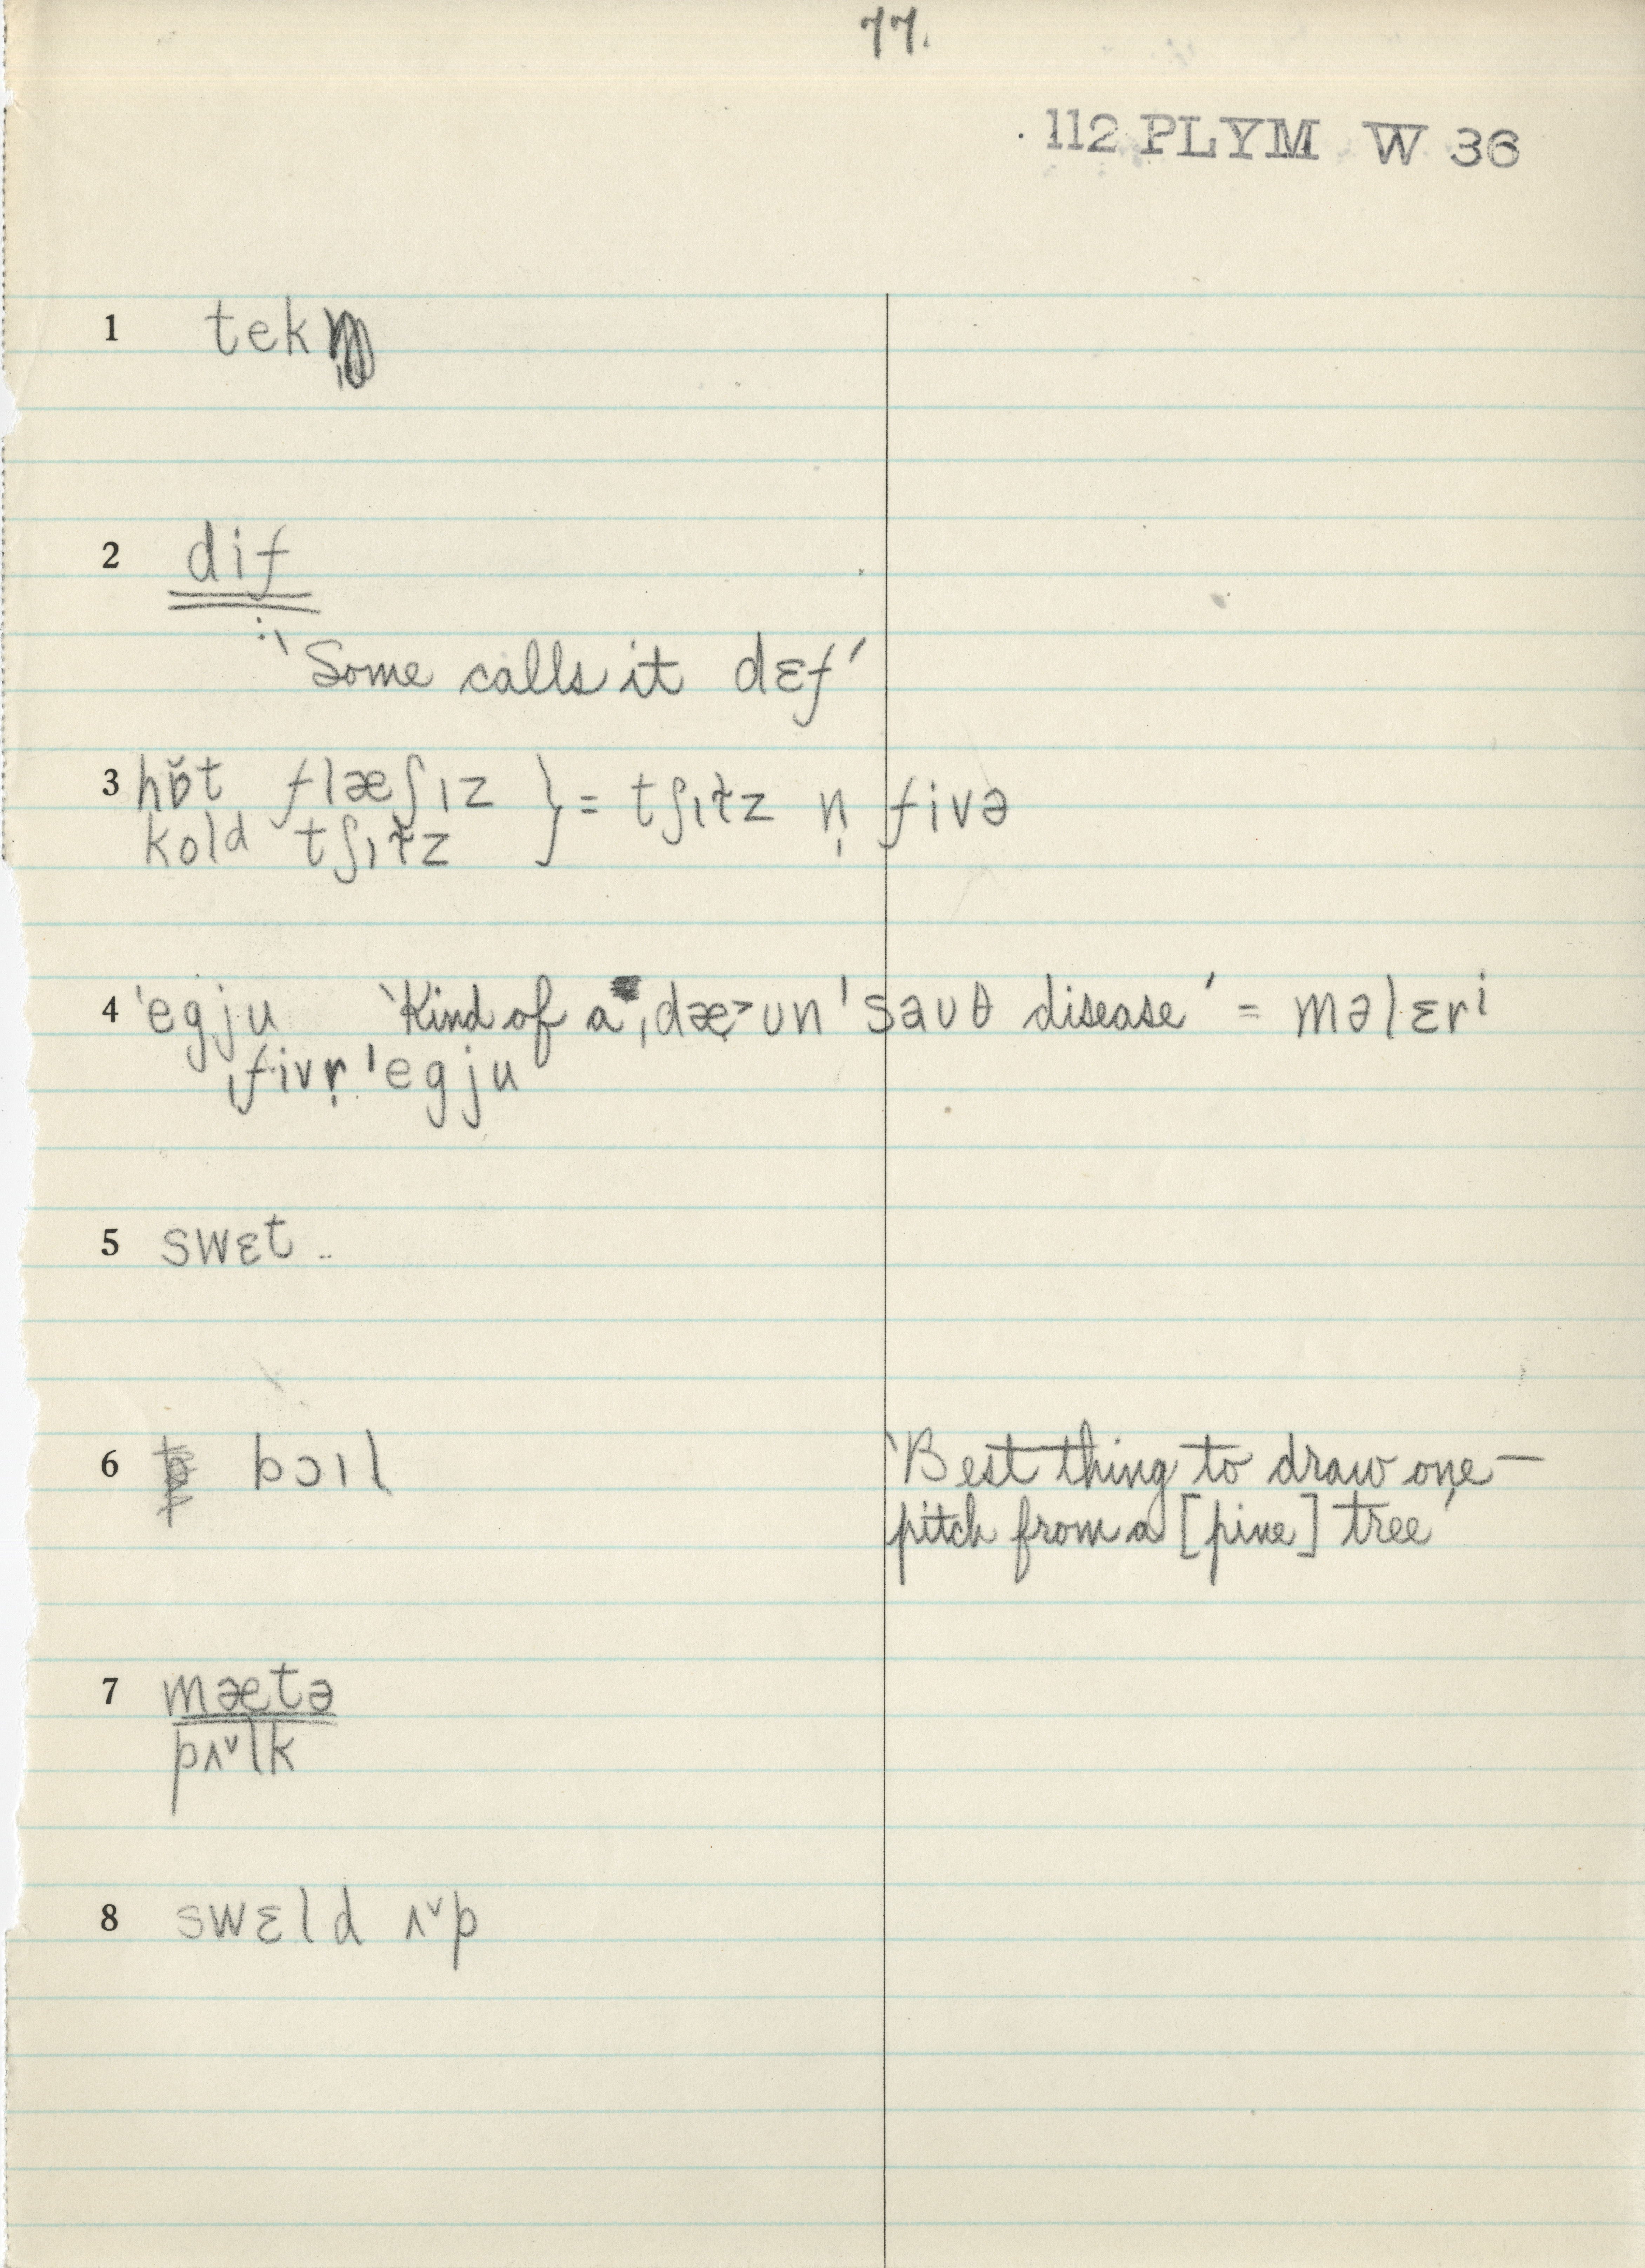 77.
112 PLYM W 36
1 tek
2 dif
: 'Some calls it dɛf'
3 hɒ̆t flæʃɪz } = tʃɪɫz n̩ fivə
kold tʃɪɫz
4 ˈegju 'Kind of a ˌdæ˃ʊn ˈsaʊθ disease' = məlɛri
ˌfivr̩ ˈegju
5 swɛt ..
6 bɔɪl 'Best thing to draw one —
pitch from a [pine] tree'
7 mætə
pʌ˅lk
8 swɛld ʌ˅p